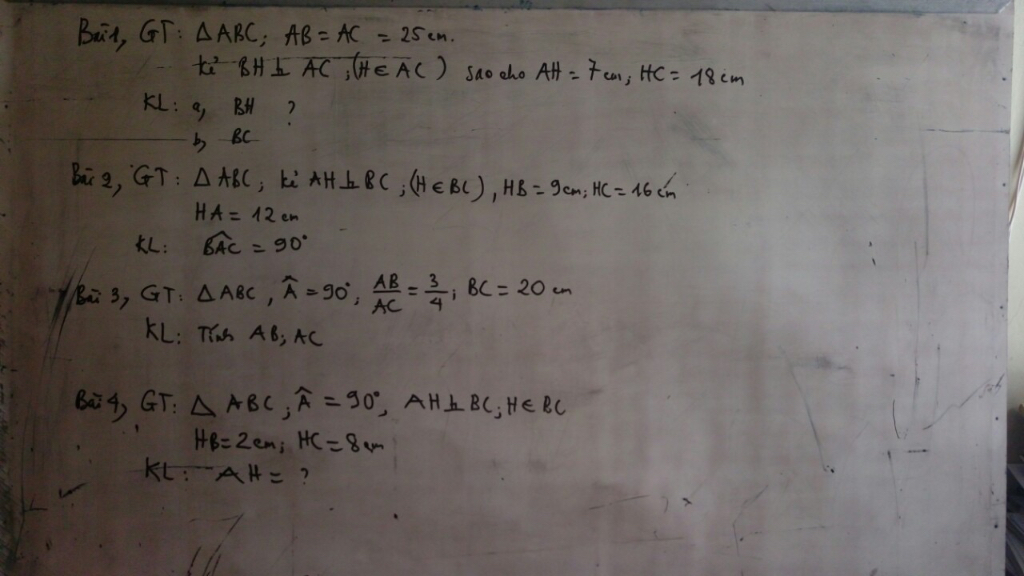 Bài 1, GT: △ABC; AB = AC = 25cm.
kẻ BH ⊥ AC; (H ∈ AC) sao cho AH = 7cm; HC = 18cm
KL: a, BH ?
b, BC
Bài 2, GT: △ABC; kẻ AH ⊥ BC; (H ∈ BC), HB = 9cm; HC = 16cm
HA = 12cm
KL: B̂AC = 90°
Bài 3, GT: △ABC, Â = 90°, AB/AC = 3/4; BC = 20cm
KL: Tính AB; AC
Bài 4, GT: △ABC; Â = 90°, AH ⊥ BC; H ∈ BC
HB = 2cm; HC = 8cm
KL: AH = ?